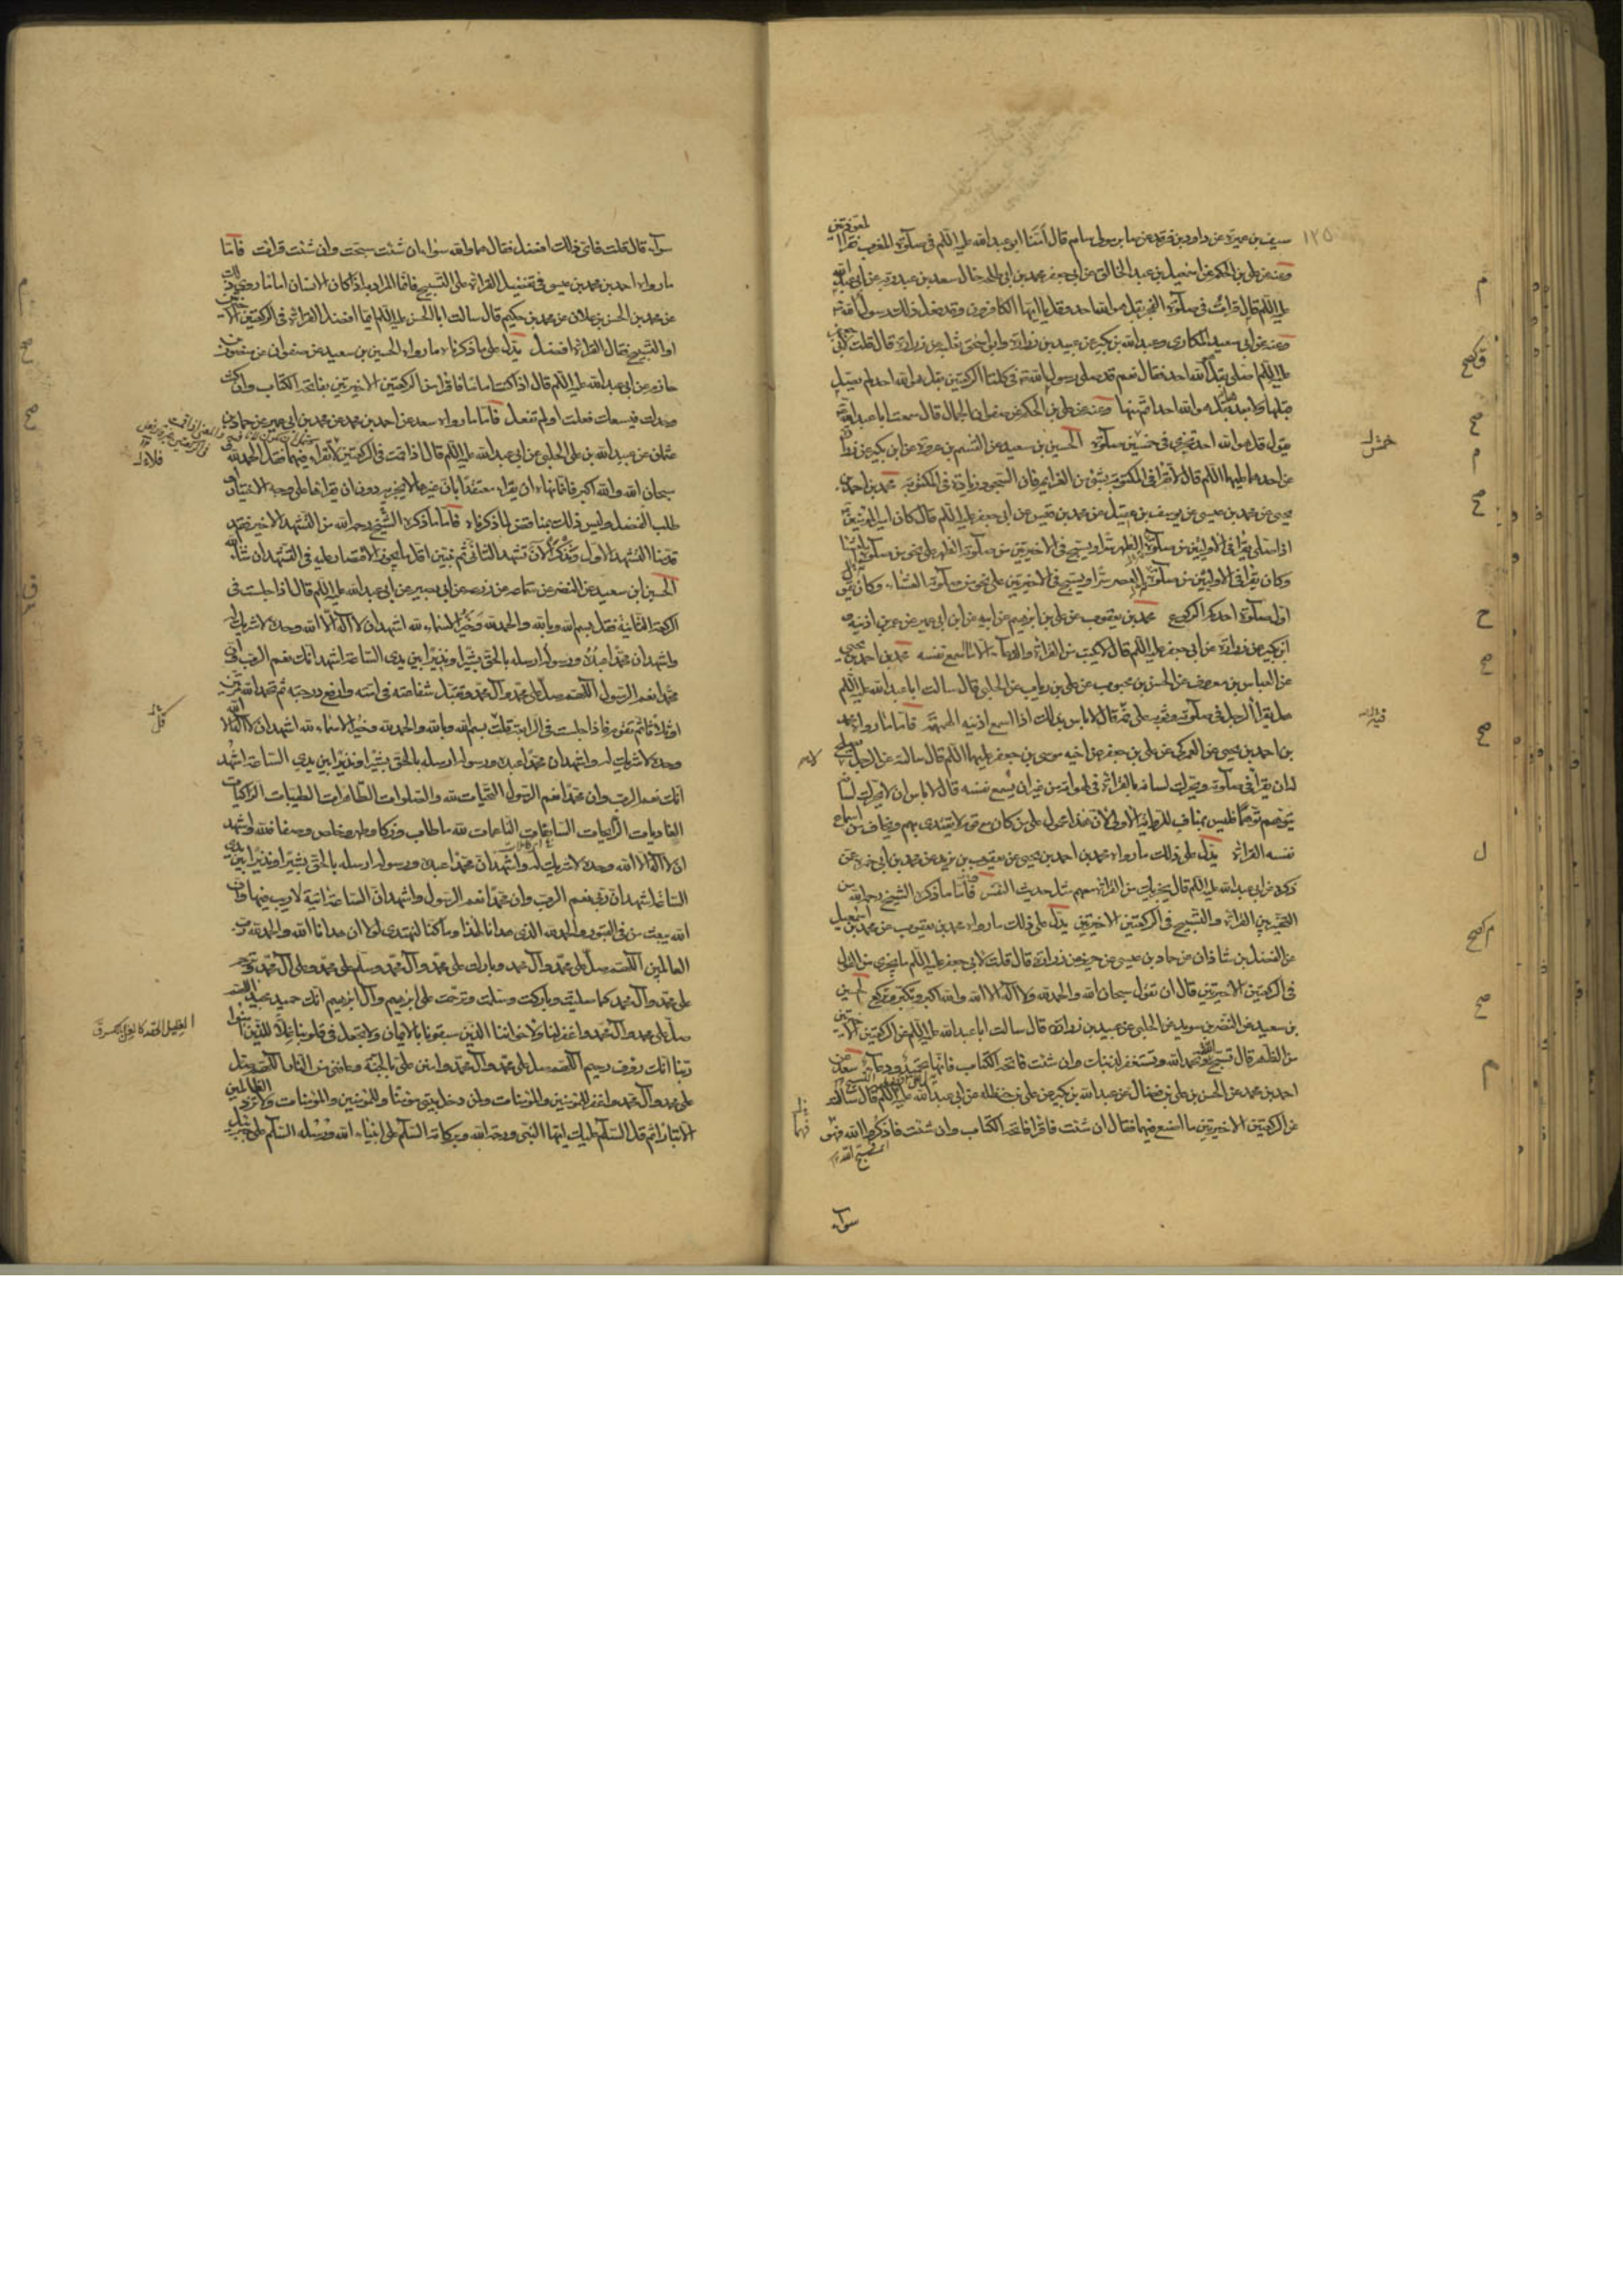 ١٢٥
سيف بن عميرة عن داود بن فرقد عن صابر مولى بسام قال أمنا ابو عبدالله عليه السلم في صلوة المغرب فقرا المعوذتين
وعنه عن علي بن الحكم عن اسمعيل بن عبد الخالق عن ابي جعفر محمد بن ابي طلحة خال سهل بن عبد ربه عن ابي عبدالله
عليه السلم قال قرأت في صلوة الفجر بقل هو الله احد وقل يا ايها الكافرون وقد فعل ذلك رسول الله
وعنه عن ابي سعيد المكاري وعبدالله بن بكير عن عبيد بن زرارة وابي اسحق ثعلبة عن زرارة قال قلت لابي جعفر
عليه السلم اصلي بقل هو الله احد فقال نعم قد صلى رسول الله في كلتا الركعتين بقل هو الله احد لم يصل
قبلها ولا بعدها بقل هو الله احد اتم منها وعنه عن علي بن الحكم عن صفوان الجمال قال سمعت ابا عبدالله
يقول قل هو الله احد تجزي في خمسين صلوة الحسين بن سعيد عن القسم بن عروة عن ابن بكير عن زرارة
عن احدهما عليهما السلم قال لا تقرا في المكتوبة بشئ من العزايم فان السجود زيادة في المكتوبة محمد بن احمد بن
يحيى عن محمد بن عيسى عن يوسف بن عقيل عن محمد بن قيس عن ابي جعفر عليه السلم قال كان امير المؤمنين
اذا صلى يقرا في الاوليين من صلوة الظهر سرا ويسبح في الاخيرتين من صلوة الظهر على نحو من صلوة العشاء
وكان يقرا في الاوليين من صلوة العصر سرا ويسبح في الاخيرتين على نحو من صلوة العشاء وكان يقول
اول صلوة احدكم الركوع محمد بن يعقوب عن علي بن ابرهيم عن ابيه عن ابن ابي عمير عن عمر بن اذينة و
ابن بكير عن زرارة عن ابي جعفر عليه السلم قال لا يكتب من القراءة والدعاء الا ما اسمع نفسه محمد بن احمد بن يحيى
عن العباس بن معروف عن الحسن بن محبوب عن علي بن رياب عن الحلبي قال سالت ابا عبدالله عليه السلم
هل يقرأ الرجل في صلوته وثوبه على فمه قال لا باس بذلك اذا اسمع اذنيه الهمهمة فاما ما رواه محمد
بن احمد بن يحيى عن العمركي عن علي بن جعفر عن اخيه موسى بن جعفر عليهما السلم قال سالته عن الرجل يصلح
له ان يقرأ في صلوته ويحرك لسانه بالقراءة في لهواته من غير ان يسمع نفسه قال لا باس ان لا يحرك لسانه
يتوهم توهما فليس بمناف للرواية الاولى لان هذا محمول على من كان مع قوم لا يقتدى بهم ويخاف من اسماع
نفسه القراءة يدل على ذلك ما رواه محمد بن احمد بن يحيى عن يعقوب بن يزيد عن محمد بن ابي حمزة عمن
ذكره عن ابي عبدالله عليه السلم قال يجزيك من القراءة معهم مثل حديث النفس فاما ما ذكره الشيخ رحمه الله من
التخيير بين القراءة والتسبيح في الركعتين الاخيرتين يدل على ذلك ما رواه محمد بن يعقوب عن محمد بن اسمعيل
عن الفضل بن شاذان عن حماد بن عيسى عن حريز عن زرارة قال قلت لابي جعفر عليه السلم ما يجزي من القول
في الركعتين الاخيرتين قال ان تقول سبحان الله والحمد لله ولا اله الا الله والله اكبر وتكبر وتركع الحسين
بن سعيد عن النضر بن سويد عن الحلبي عن عبيد بن زرارة قال سالت ابا عبدالله عليه السلم عن الركعتين الاخيرتين
من الظهر قال تسبح وتحمد الله وتستغفر لذنبك وان شئت فاتحة الكتاب فانها تحميد ودعاء سعد عن
احمد بن محمد عن الحسن بن علي بن فضال عن عبدالله بن بكير عن علي بن حنظلة عن ابي عبدالله عليه السلم قال سالته
عن الركعتين الاخيرتين ما اصنع فيهما فقال ان شئت فاقرا فاتحة الكتاب وان شئت فاذكر الله فهو
سواء
سواء قال قلت فاي ذلك افضل فقال هما والله سواء ان شئت سبحت وان شئت قرات فاما
ما رواه احمد بن محمد بن عيسى في تفضيل القراءة على التسبيح فانما المراد به اذا كان الانسان اماما روى ذلك
عن محمد بن الحسن بن علان عن محمد بن حكيم قال سالت ابا الحسن عليه السلم ايما افضل القراءة في الركعتين الاخيرتين
او التسبيح فقال القراءة افضل يدل على ما ذكرناه ما رواه الحسين بن سعيد عن صفوان عن منصور بن
حازم عن ابي عبدالله عليه السلم قال اذا كنت اماما فاقرا في الركعتين الاخيرتين بفاتحة الكتاب وان كنت
وحدك فيسعك فعلت اولم تفعل فاما ما رواه سعد عن احمد بن محمد عن محمد بن ابي عمير عن حماد بن
عثمان عن عبيدالله بن علي الحلبي عن ابي عبدالله عليه السلم قال اذا قمت في الركعتين لا تقرا فيهما فقل الحمد لله و
سبحان الله والله اكبر فانما نهاه ان يقراء معتقدا بان غيرها لا يجزيه دون ان يقراها على وجه الاختيار و
طلب الفضل وليس ذلك بمناقض لما ذكرناه فاما ما ذكره الشيخ رحمه الله من التشهد الاخير فقد
قدمنا التشهد الاول ونذكر الآن تشهد الثاني ثم نبين اقل ما يجوز الاقتصار عليه في التشهد ان شاء الله
الحسين بن سعيد عن النضر عن سماعة عن زرعة عن ابي بصير عن ابي عبدالله عليه السلم قال اذا جلست في
الركعة الثانية فقل بسم الله وبالله والحمد لله وخير الاسماء لله اشهد ان لا اله الا الله وحده لا شريك له
واشهد ان محمدا عبده ورسوله ارسله بالحق بشيرا ونذيرا بين يدي الساعة اشهد انك نعم الرب وان
محمدا نعم الرسول اللهم صل على محمد وآل محمد وتقبل شفاعته في امته وارفع درجته ثم تحمد الله مرتين
او ثلاثا ثم تقوم فاذا جلست في الرابعة قلت بسم الله وبالله والحمد لله وخير الاسماء لله اشهد ان لا اله الا الله
وحده لا شريك له واشهد ان محمدا عبده ورسوله ارسله بالحق بشيرا ونذيرا بين يدي الساعة اشهد
انك نعم الرب وان محمدا نعم الرسول التحيات لله والصلوات الطاهرات الطيبات الزاكيات
الغاديات الرايحات السابغات الناعمات لله ما طاب وزكا وطهر وخلص وصفا فلله واشهد
ان لا اله الا الله وحده لا شريك له واشهد ان محمدا عبده ورسوله ارسله بالحق بشيرا ونذيرا بين يدي
الساعة اشهد ان ربي نعم الرب وان محمدا نعم الرسول واشهد ان الساعة اتية لا ريب فيها وان
الله يبعث من في القبور والحمد لله الذي هدانا لهذا وما كنا لنهتدي لولا ان هدانا الله والحمد لله رب
العالمين اللهم صل على محمد وآل محمد وبارك على محمد وآل محمد وسلم على محمد وعلى آل محمد وترحم
على محمد وآل محمد كما صليت وباركت وسلمت وترحمت على ابرهيم وآل ابرهيم انك حميد مجيد اللهم
صل على محمد وآل محمد واغفر لنا ولاخواننا الذين سبقونا بالايمان ولا تجعل في قلوبنا غلا للذين آمنوا
ربنا انك رءوف رحيم اللهم صل على محمد وآل محمد وامنن علي بالجنة وعافني من النار اللهم صل
على محمد وآل محمد واغفر للمؤمنين والمؤمنات ولمن دخل بيتي مؤمنا وللمؤمنين والمؤمنات ولا تزد الظالمين
الا تبارا ثم قل السلم عليك ايها النبي ورحمة الله وبركاته السلم على انبياء الله ورسله السلم على جبرئيل